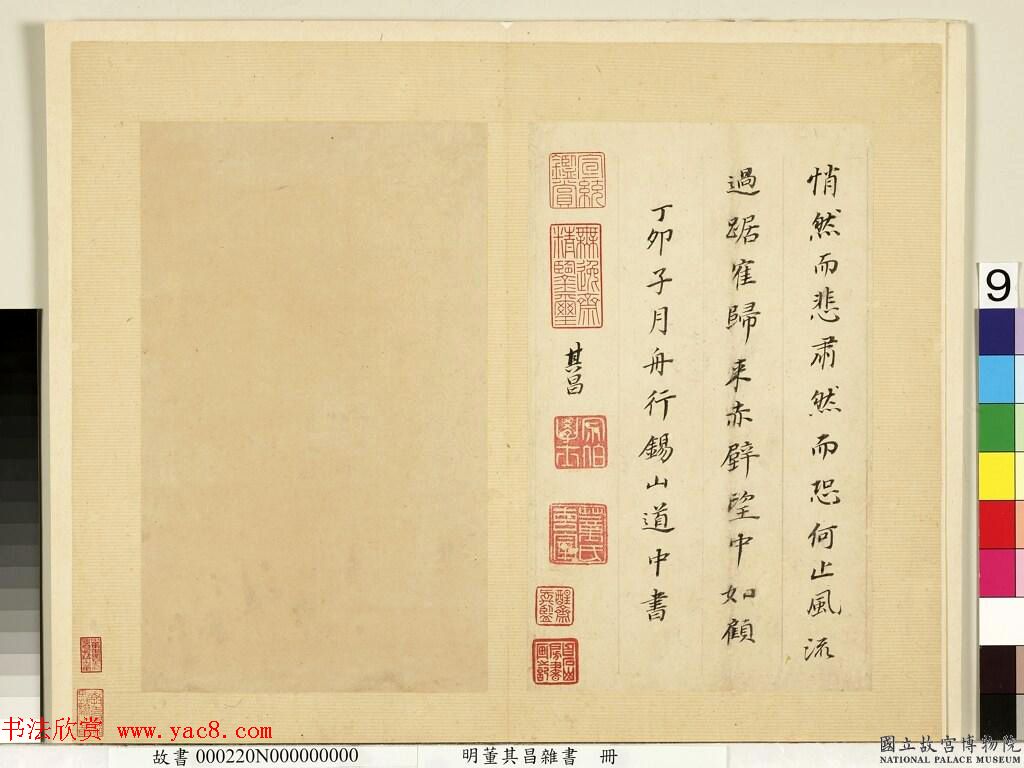 悄然而悲肅然而恐何止風流
過踞雀歸来赤壁望中如顧
丁卯子月舟行錫山道中書
其昌
宣統鑑賞
無逸齋精鑒璽
宗伯學士
董氏玄宰
9
书法欣赏 www.yac8.com
故書 000220N000000000
明董其昌雜書 冊
國立故宮博物院
NATIONAL PALACE MUSEUM